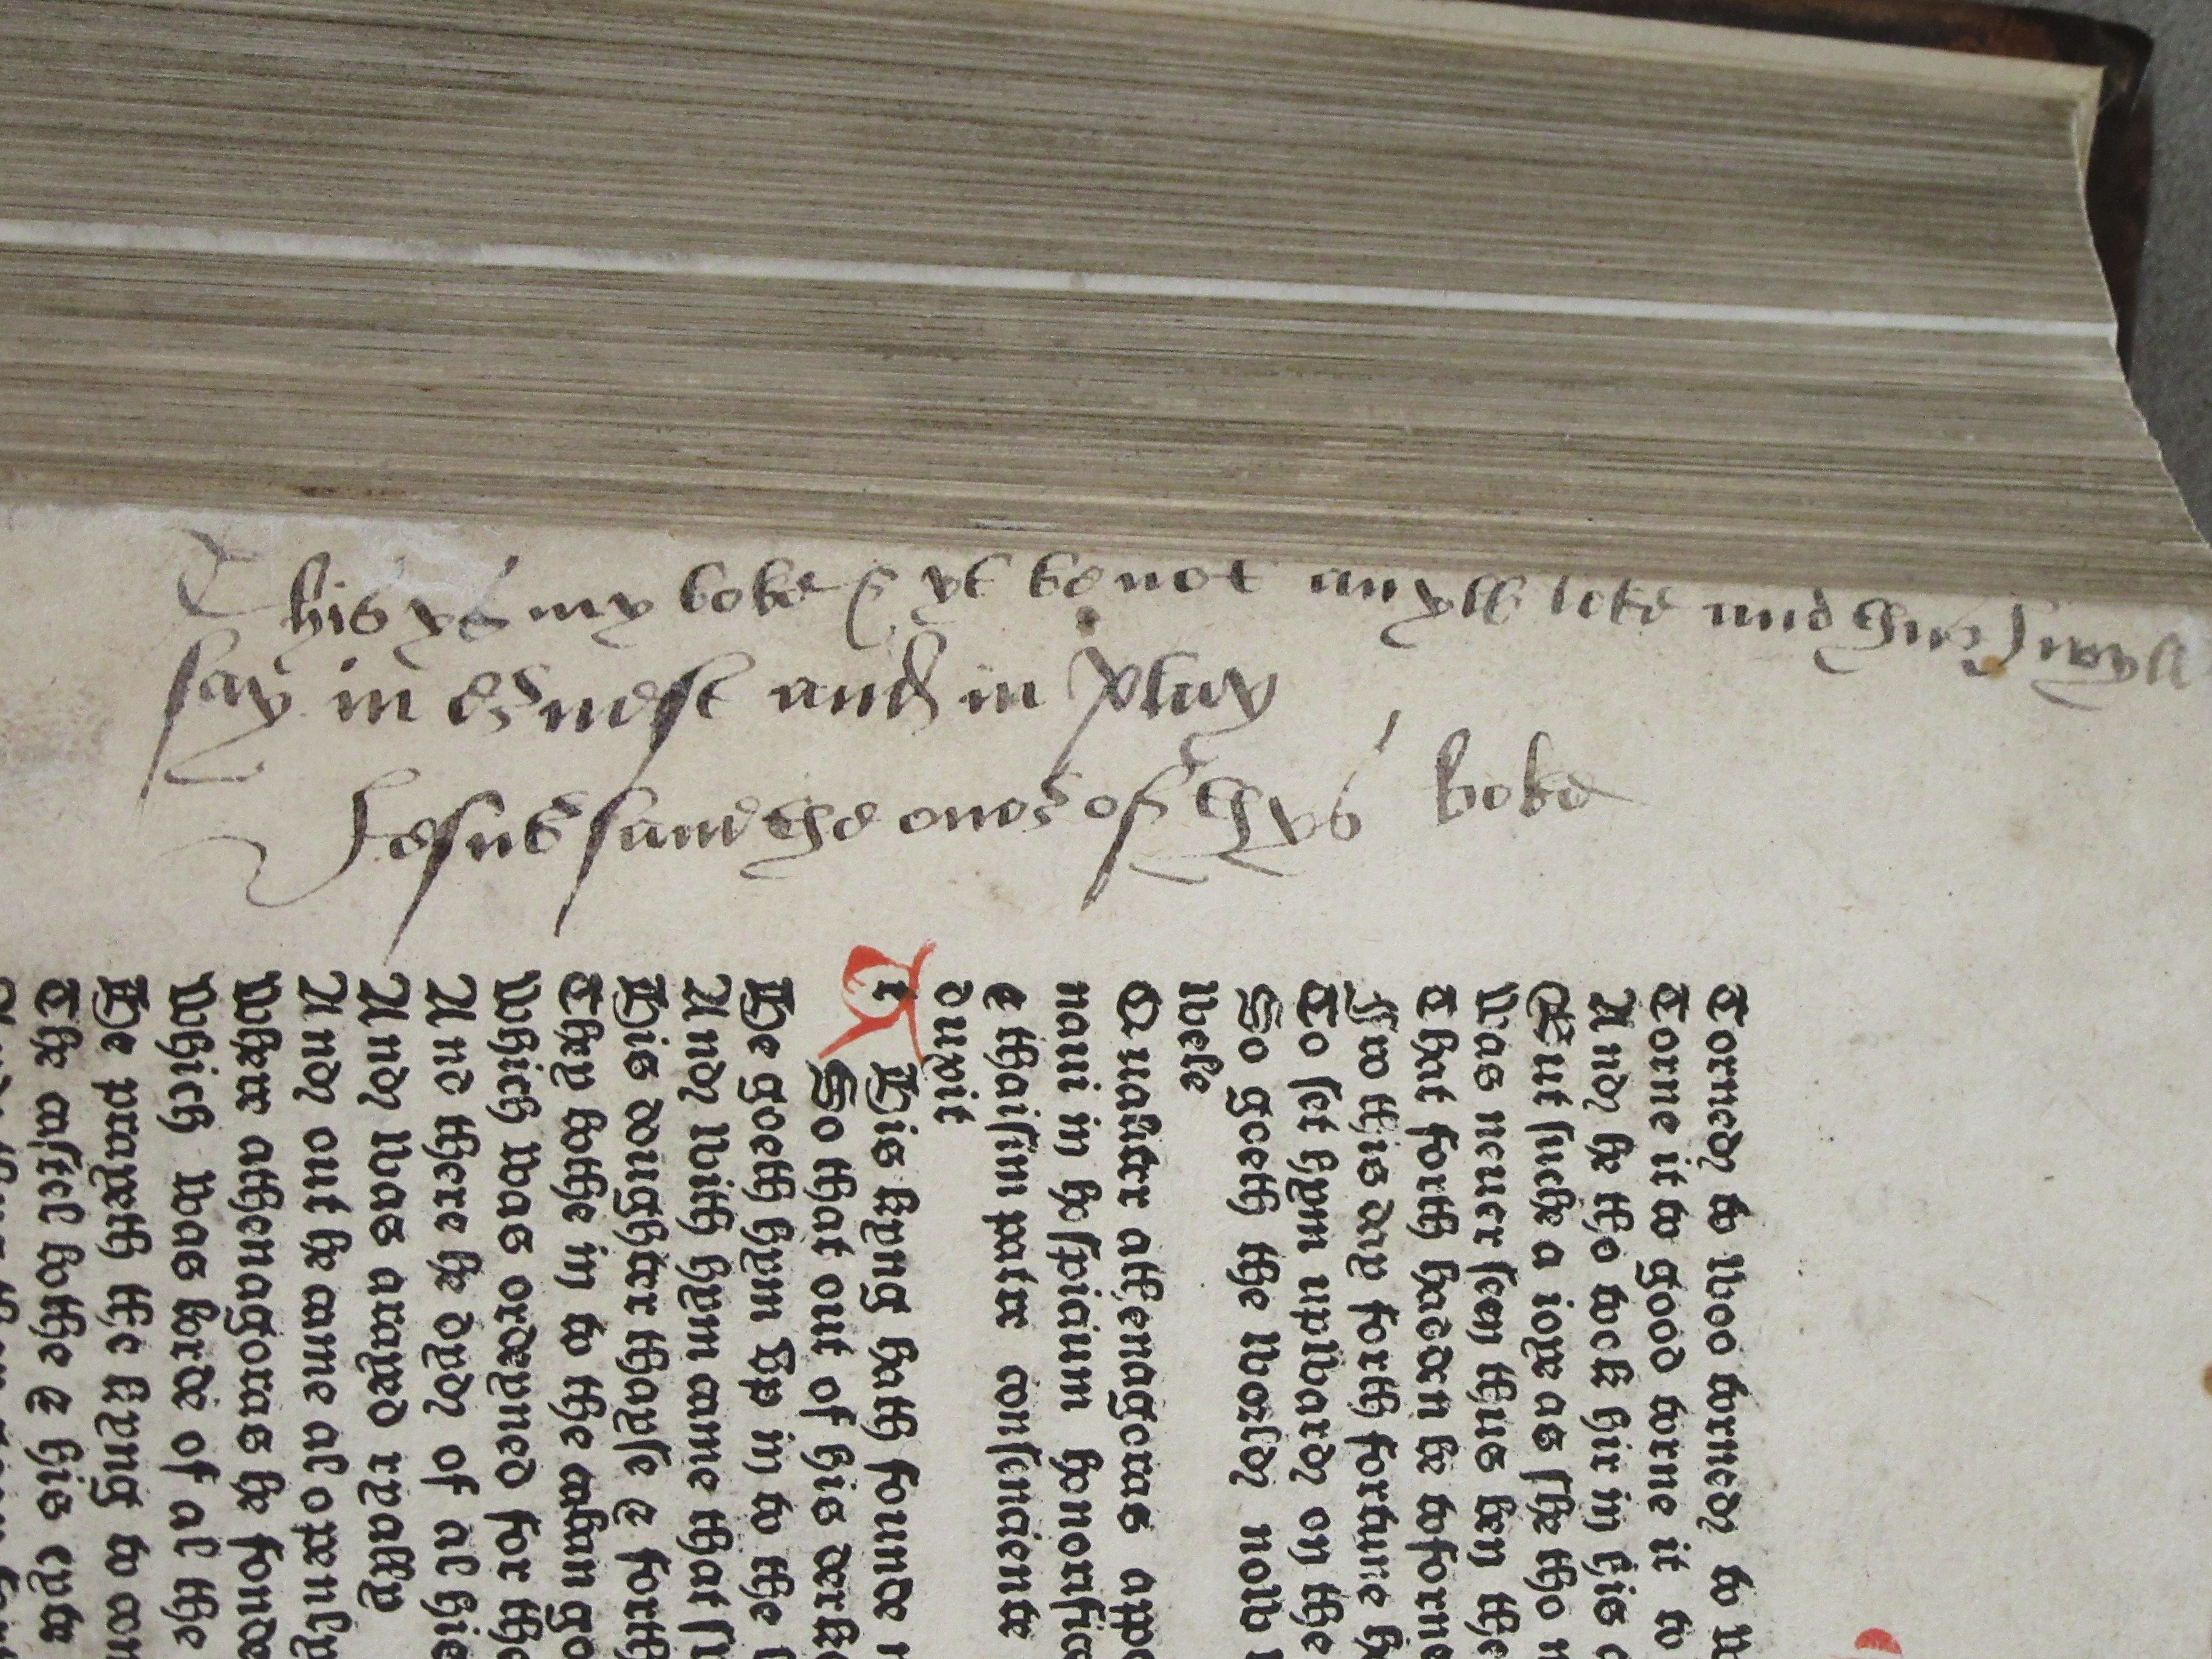 This ys my boke & yt be not any loke and thus J wyll
say in ernest and in play
Jesus saue the oner of thys boke
Torned to woo torned to w
Torne it to good torne it to
And he tho took hir in his
But suche a ioye as she tho
Was neuer seen thus ben the
That forth hadden be to forne
Fro this day forth fortune h
To set hym upward on the
So goeth the world now
wele
Qualiter athenagoras appo
naui in hospicium honorifice
e thaisim patre consenciente
duxit
T His kyng hath founde n
So that out of his derke
He goeth hym vp in to the
And with hym came that
His doughter thayse & forth
They bothe in to the caban go
Which was ordeyned for the
And there he dyd of al his
And was arayed ryally
And out he came al openly
Where athenagoras he fonde
Which was lorde of al the
He prayeth the kyng to com
The castel bothe & his cyte